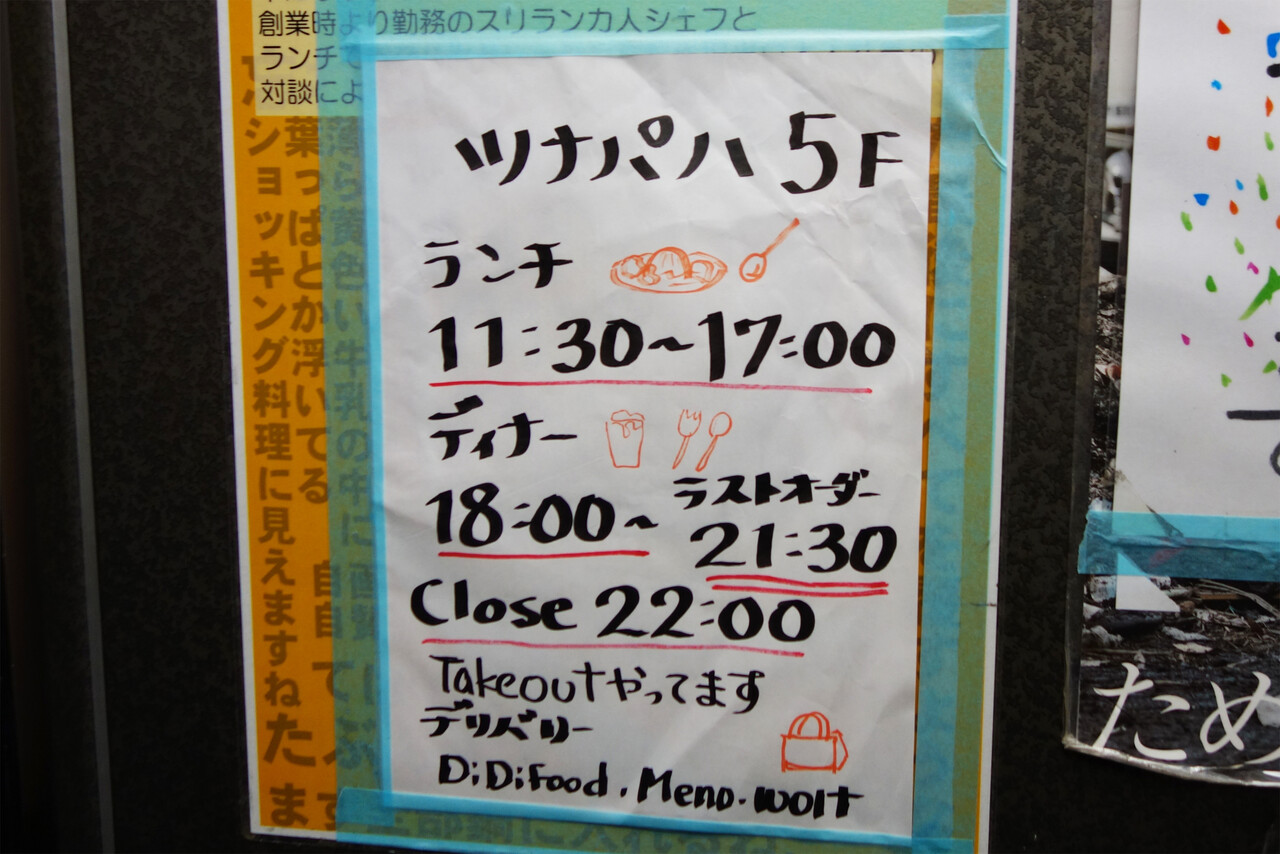 創業時より勤務のスリランカ人シェフと
ランチ
対談によ
ツナパハ 5F
ランチ
11:30~17:00
ディナー
18:00~
ラストオーダー
21:30
Close 22:00
Takeoutやってます
デリバリー
DiDiFood . Menu . wolt
葉っぱとか浮いてる
ショッキング料理に見えますね
ため